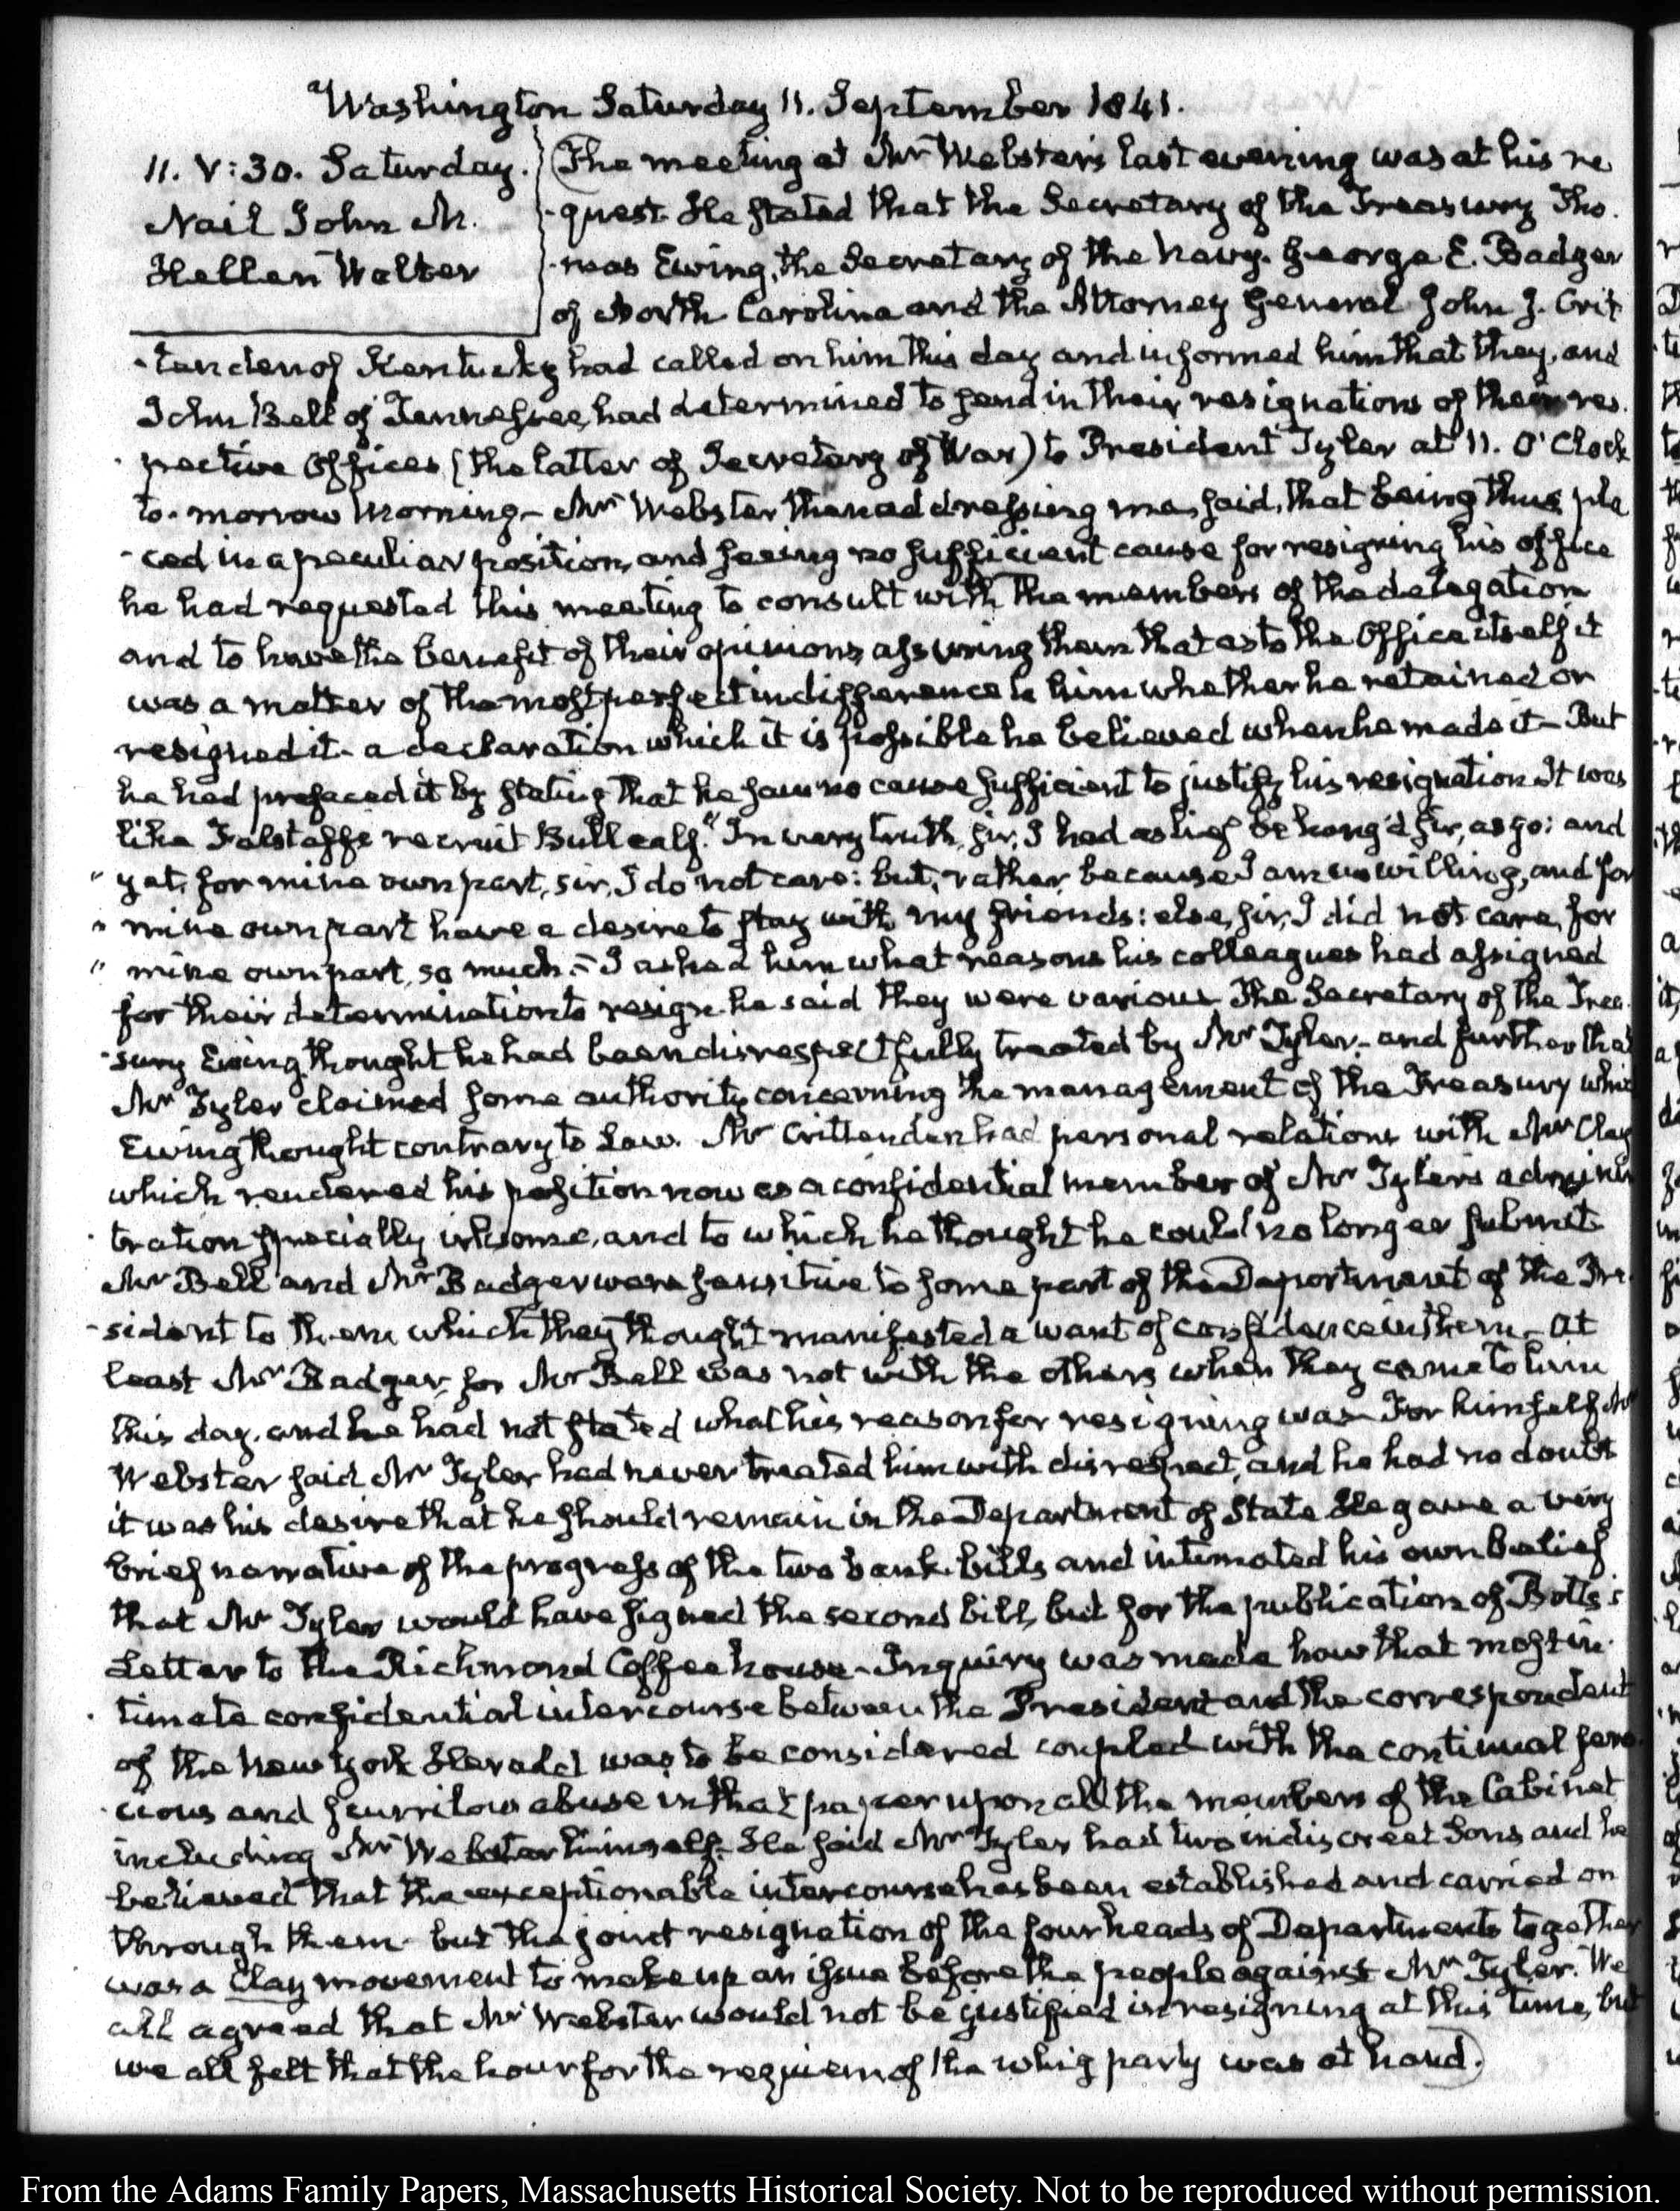 Washington Saturday 11. September 1841.
11. V:30. Saturday.
Nail John M.
Hellen Walter
The meeting at Mr Webster's last evening was at his re
-quest. He stated that the Secretary of the Treasury Tho.
-mas Ewing, the Secretary of the Navy. George E. Badger
of North Carolina and the Attorney General John J. Crit
-tenden of Kentucky had called on him this day and informed him that they, and
John Bell of Tennessee, had determined to send in their resignations of their res.
-pective Offices (the latter of Secretary of War) to President Tyler at 11. O'Clock
to-morrow morning— Mr Webster then addressing me, said, that being thus pla
-ced in a peculiar position, and seeing no sufficient cause for resigning his office
he had requested this meeting to consult with the members of the delegation
and to have the benefit of their opinions, assuring them that as to the Office itself it
was a matter of the most perfect indifference to him whether he retained or
resigned it— a declaration which it is possible he believed when he made it— But
he had prefaced it by stating that he saw no cause sufficient to justify his resignation It was
like Falstaff's recruit Bullcalf. "In very truth, sir, I had as lief be hang'd sir, as go; and
" yet, for mine own part, sir, I do not care: but, rather, because I am unwilling, and for
" mine own part have a desire to stay with my friends: else, sir, I did not care, for
" mine own part, so much."— I asked him what reasons his colleagues had assigned
for their determination to resign— he said they were various The Secretary of the Trea.
-sury Ewing, thought he had been disrespectfully treated by Mr Tyler,— and further that
Mr Tyler claimed some authority concerning the management of the Treasury which
Ewing thought contrary to Law. Mr Crittenden had personal relations with Mr Clay
which rendered his position now as a confidential member of Mr Tyler's adminis
-tration specially irksome, and to which he thought he could no longer submit
Mr Bell and Mr Badger were sensitive to some part of the Deportment of the Pre-
-sident to them which they thought manifested a want of confidence in them— at
least Mr Badger, for Mr Bell was not with the others when they came to him
this day, and he had not stated what his reason for resigning was— For himself Mr
Webster said Mr Tyler had never treated him with disrespect, and he had no doubt
it was his desire that he should remain in the Department of State He gave a very
brief narrative of the progress of the two bank-bills and intimated his own belief
that Mr Tyler would have signed the second bill, but for the publication of Botts's
Letter to the Richmond Coffee house— Inquiry was made how that most in
-timate confidential intercourse between the President and the correspondent
of the New York Herald was to be considered coupled with the continual fero-
-cious and scurrilous abuse in that paper upon all the members of the Cabinet
including Mr Webster himself— He said Mr Tyler had two indiscreet Sons and he
believed that the exceptionable intercourse has been established and carried on
through them— but the joint resignation of the four heads of Departments together
was a Clay movement to make up an issue before the people against Mr Tyler. We
all agreed that Mr Webster would not be justified in resigning at this time, but
we all felt that the hour for the requiem of the whig party was at hand.
From the Adams Family Papers, Massachusetts Historical Society. Not to be reproduced without permission.